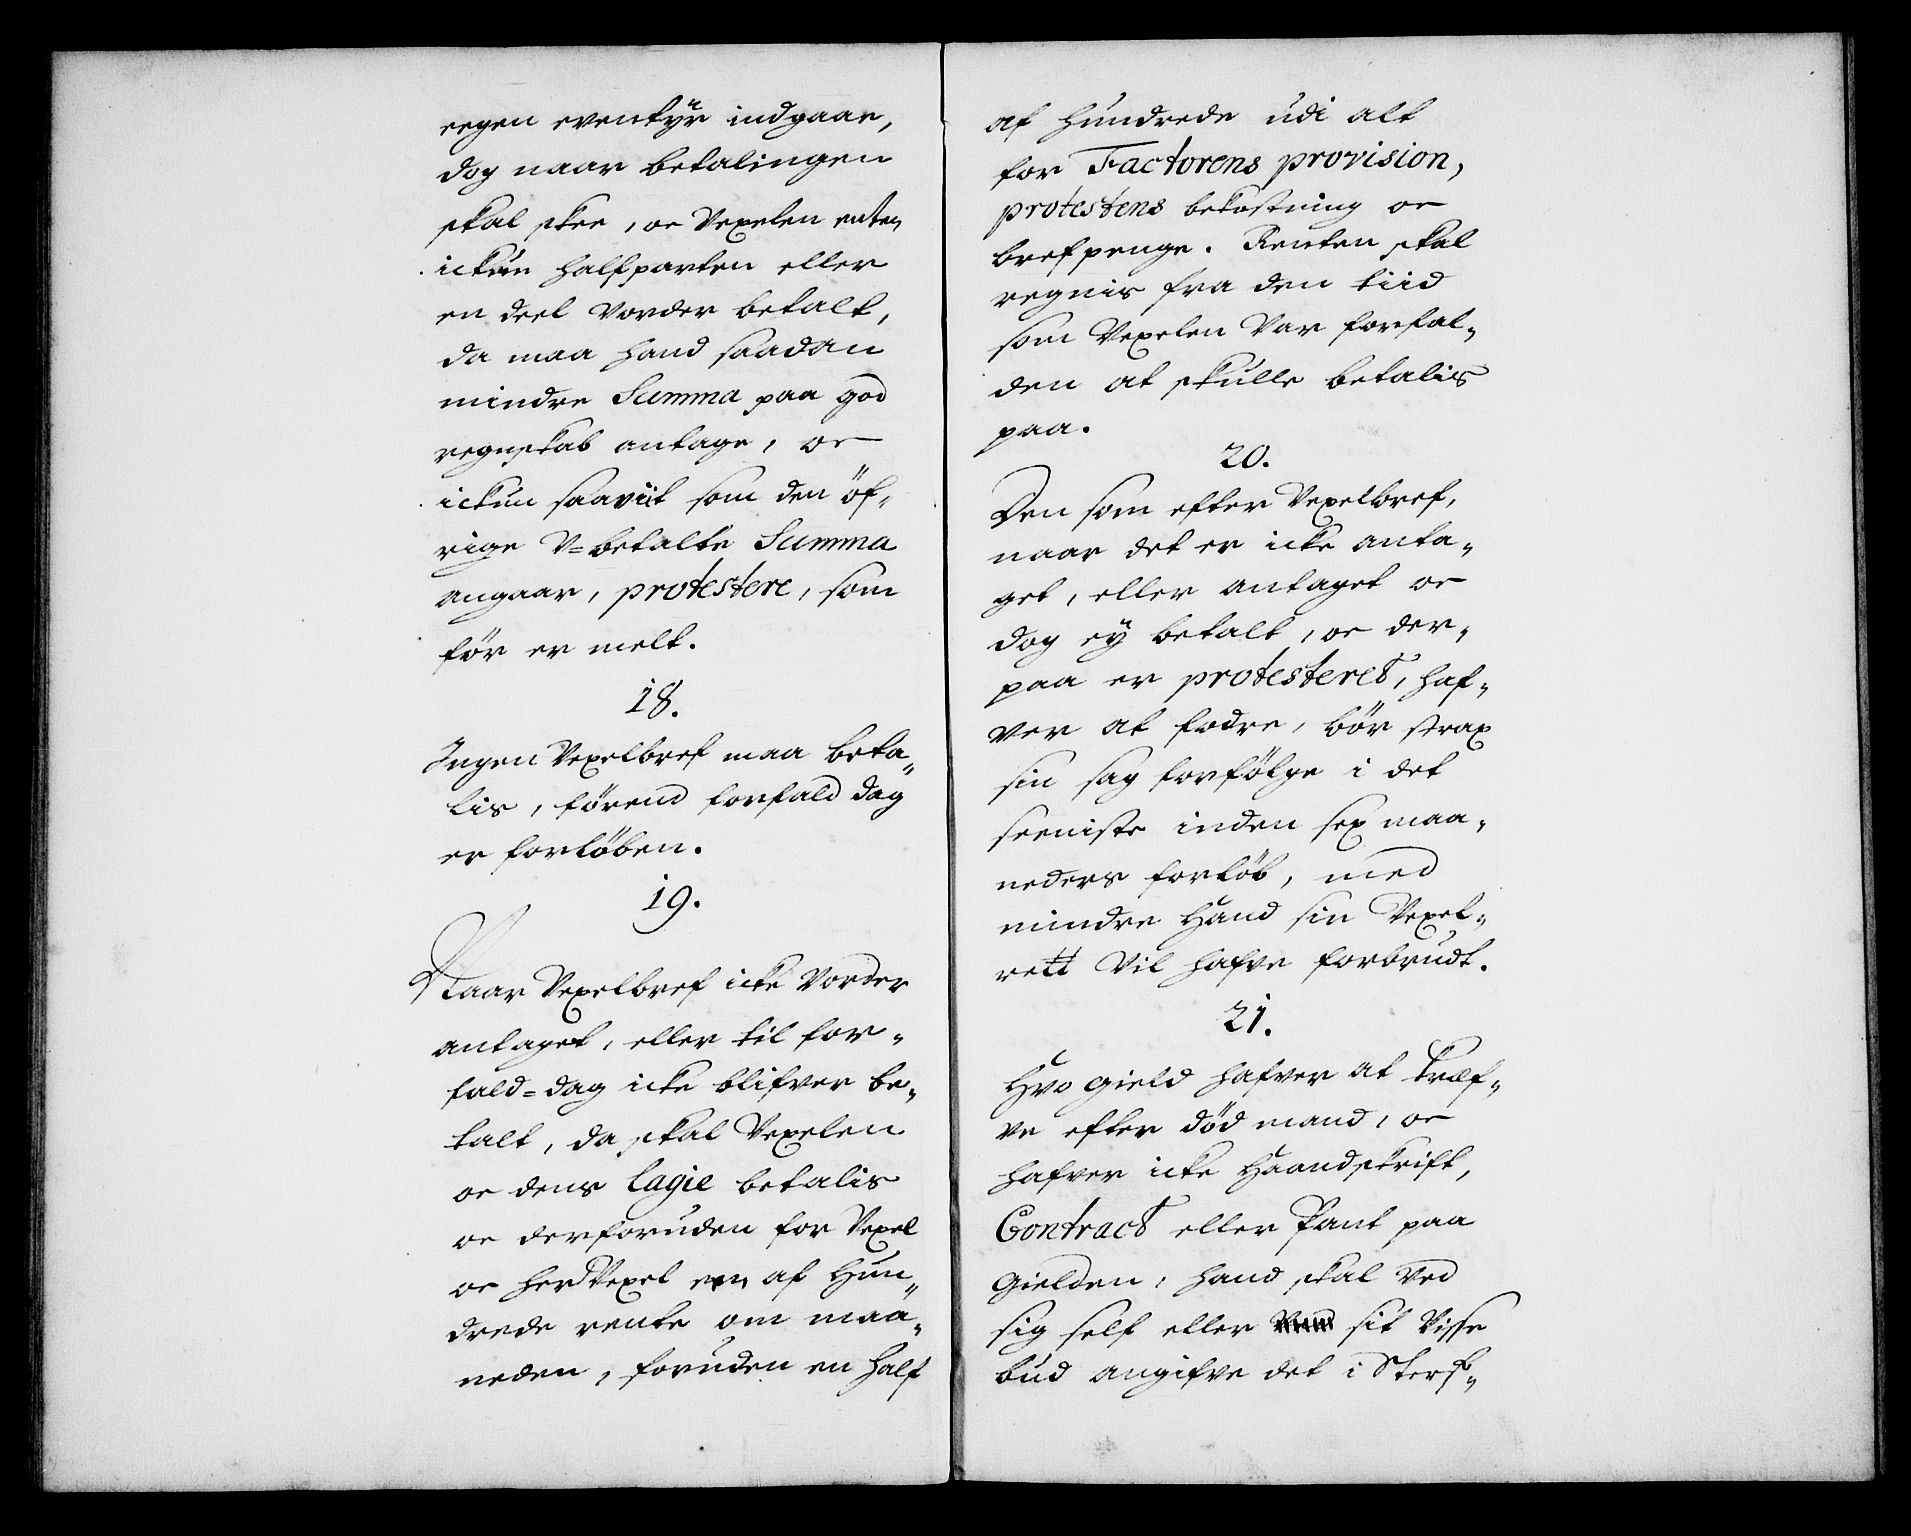 eegen eventÿr indgaae,
dog naar betalingen
skal skee, oc Vexelen enten
ickun halfparten eller
en deel vorder betalt,
da maa hand saadan
mindre Summa paa god
regnskab antage, oc
ickun saaviit som den öf„
rige V=betalte Summa
angaar, protestere, som
för er melt.
18.
Ingen Vexelbref maa beta„
lis, förend forfald dag
er forlöben.
19.
Naar Vexelbref icke vorder
antaget, eller til for„
fald=dag icke blifver be„
talt, da skal Vexelen
oc dens lagie betalis
oc derforuden for Vexel
oc her Vexel een af Hun„
drede rente om maa„
neden, foruden en half
af hundrede udi alt
for Factorens provision,
protestens bekostning oc
brefpenge. Renten skal
regnis fra den tiid
som Vexelen Var forfal„
den at skulle betalis
paa.
20.
Den som efter Vexelbref,
naar det er icke anta„
get, eller antaget oc
dog eÿ betalt, oc der„
paa er protesteret, haf„
ver at fodre, bör strax
sin sag forfölge i det
seeniste inden sex maa„
neders forlöb, med
mindre Hand sin Vexel„
rett vil hafve forbrudt.
21.
Hvo gield hafver at kræf„
ve efter död mand, oc
hafver icke Haandskrift,
Contract eller Pant paa
gielden, hand skal ved
sig self eller sit visse
bud angifve det i Sterf„